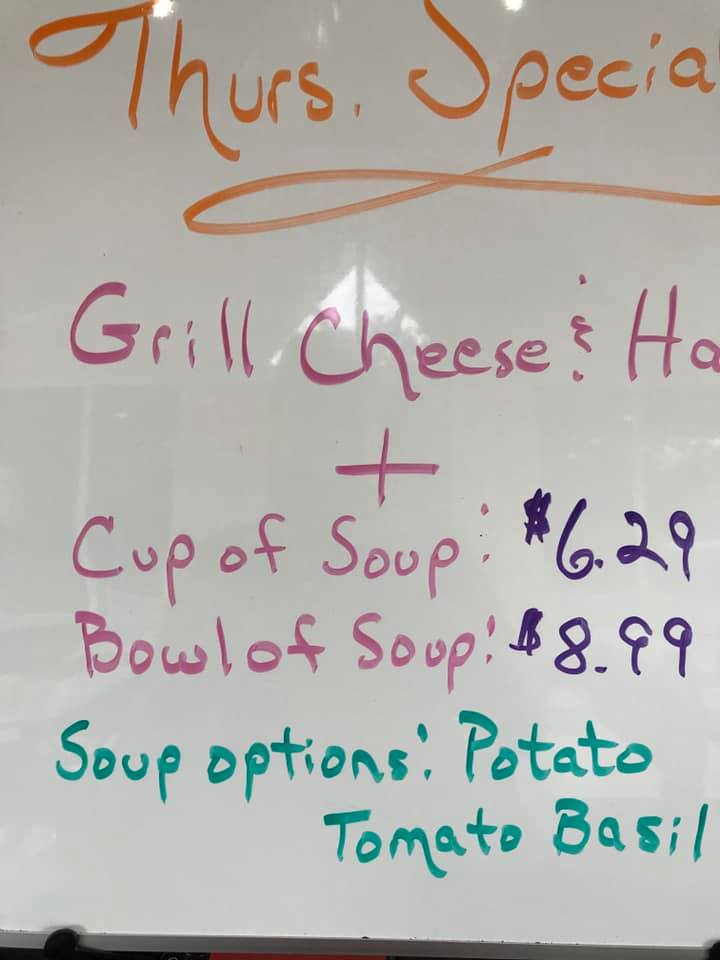 Thurs. Specia
Grill Cheese & Ha
+
Cup of Soup: $6.29
Bowl of Soup: $8.99
Soup options: Potato
Tomato Basil